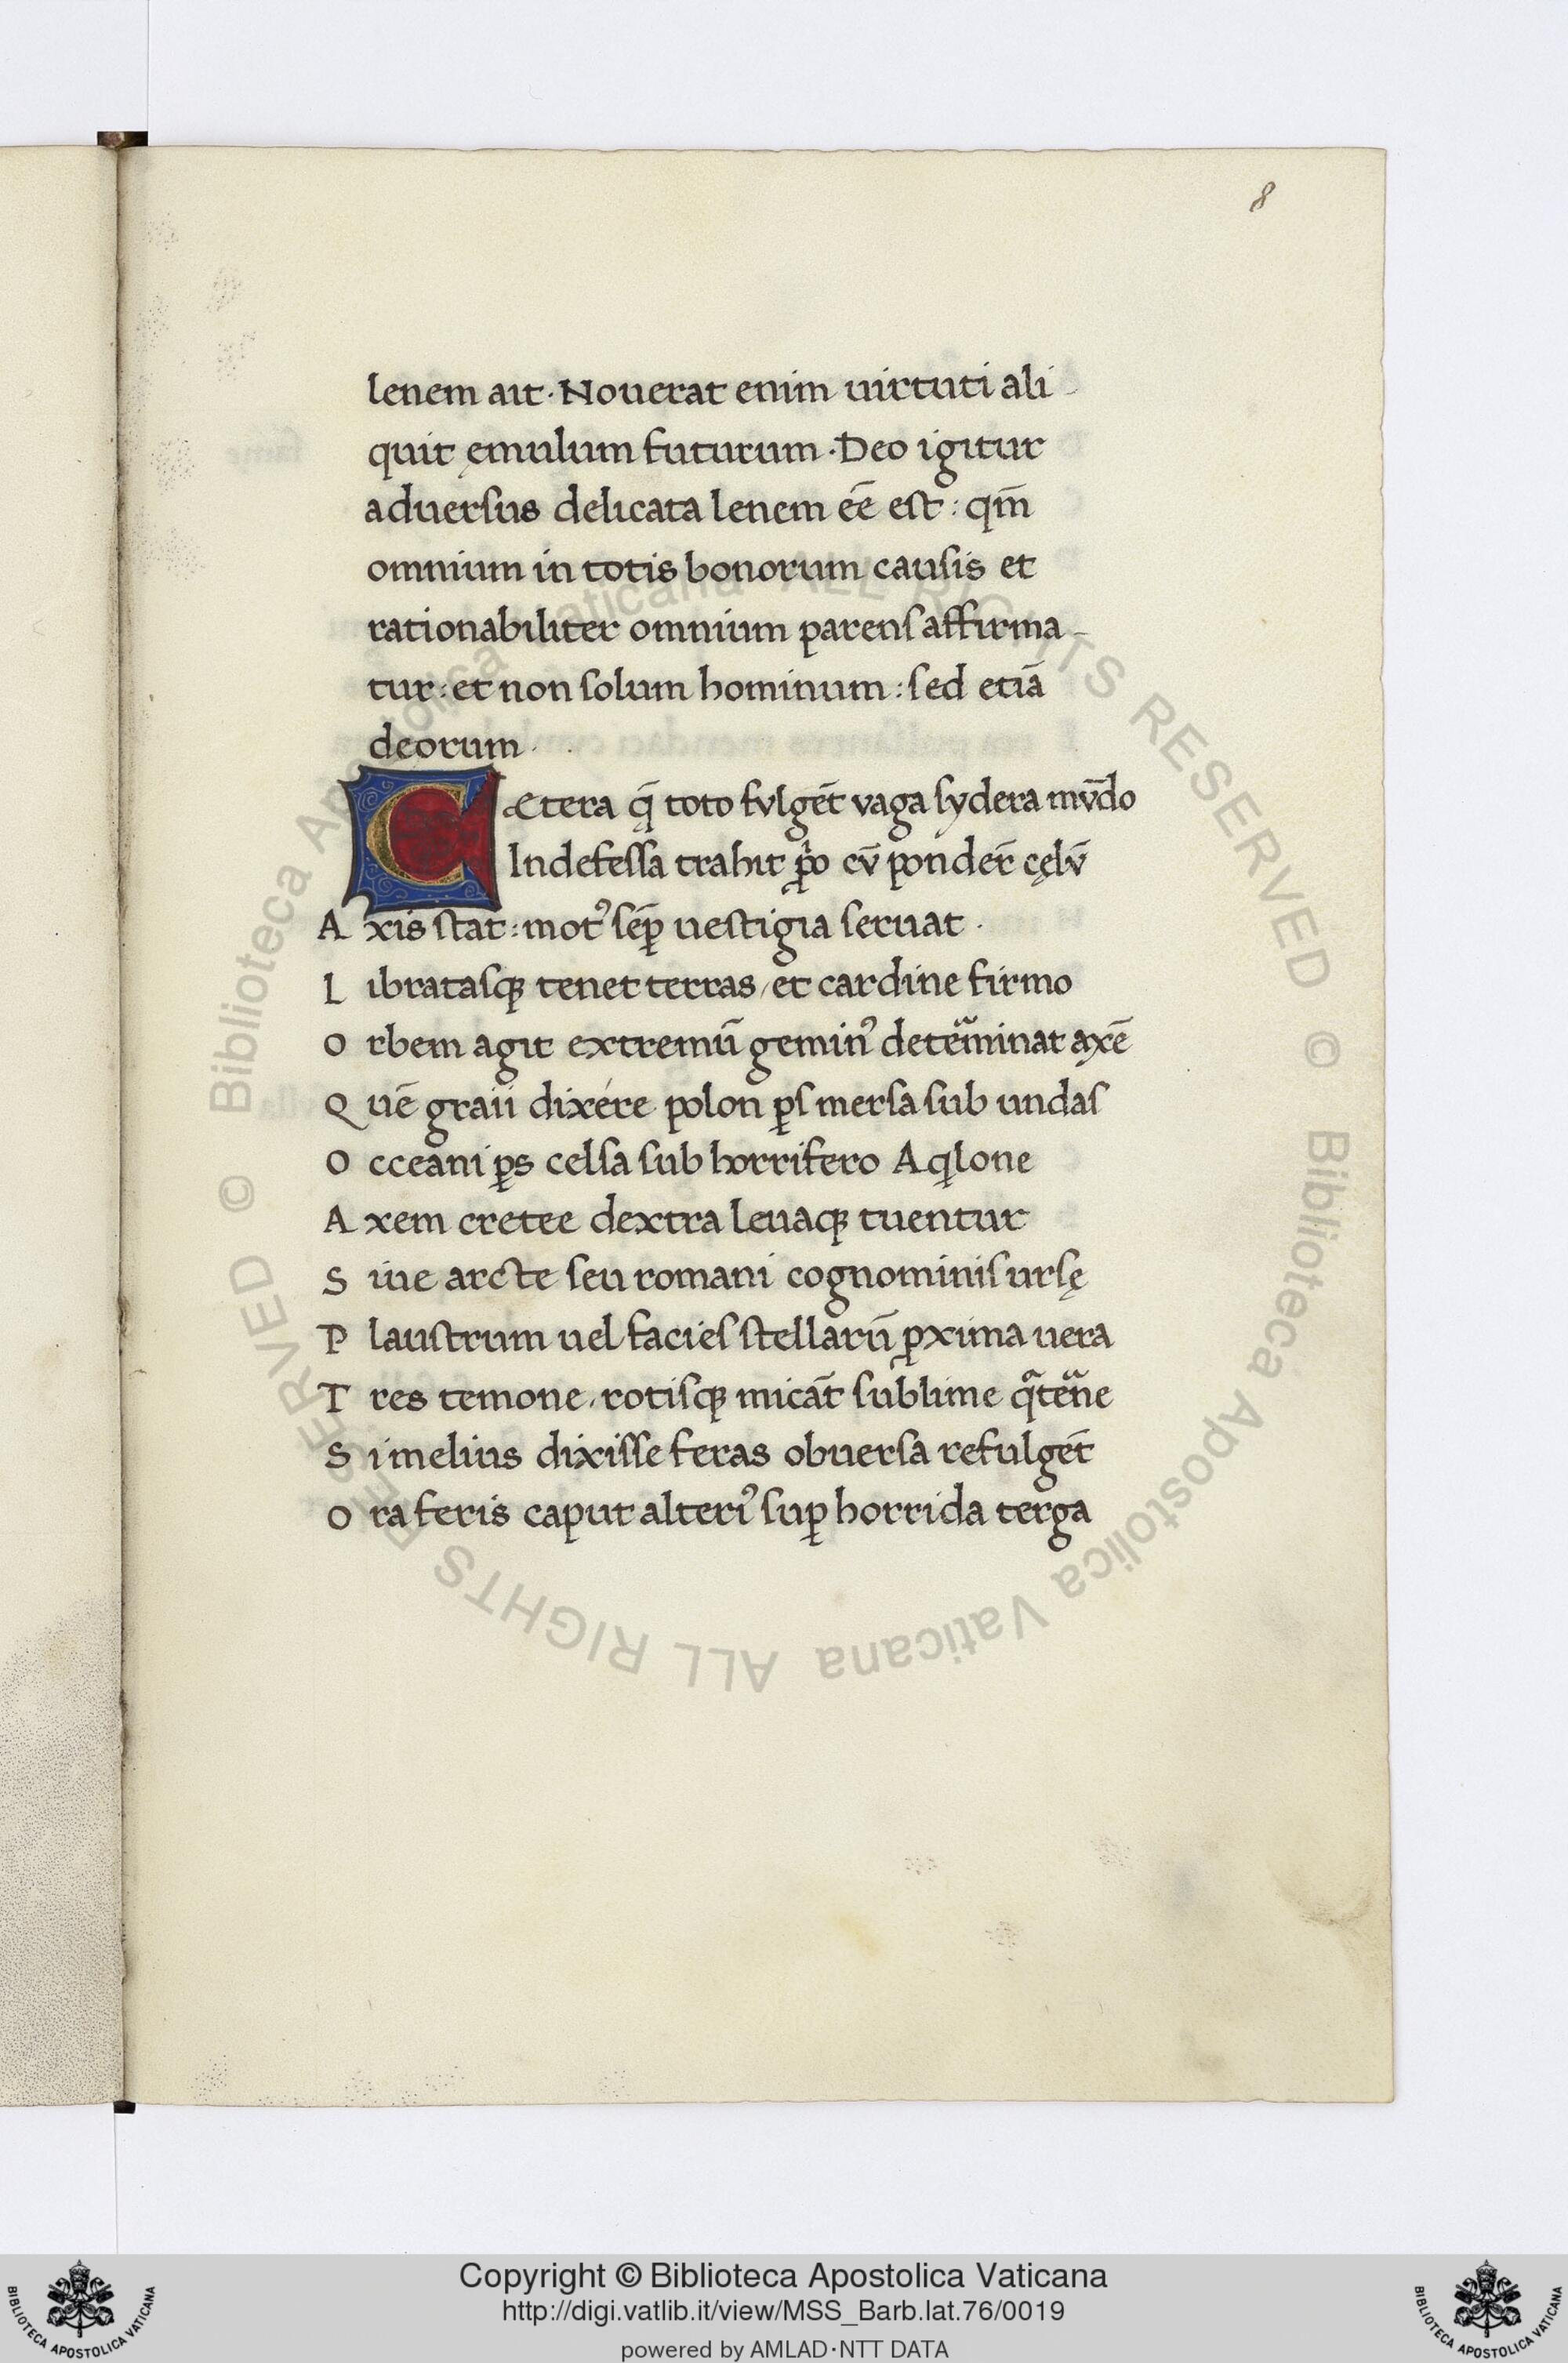 8
lenem ait · Nouerat enim uirtuti ali-
quit ęmulum futurum · Deo igitur
aduersus delicata lenem eē est : qm̄
omnium in totis bonorum causis et
rationabiliter omnium parens affirma-
tur : et non solum hominum : sed etiā
deorum ·
Cætera q̨̄ toto fvlgēt vaga sydera mv̄do
Indefessa trahit ꝓ̄o cv̄ pondeř cęlv̄
A xis stat : motꝰ sēꝑ uestigia seruat ·
L ibratasqꝫ tenet terras / et cardine firmo
O rbem agit extremū geminꝰ detēminat axē
Q uē graii dixére polon ꝑs mersa sub undas
O cceani ꝑs celsa sub horrifero Aqͥlone
A xem cretee dextra leuaqꝫ tuentur
S iue arcte seu romani cognominis ursę
P laustrum uel facies stellarū ꝓxima uera
T res temone / rotisqꝫ micāt sublime qᷓteᷓne
S i melius dixisse feras obuersa refulgēt
O ra feris caput alteriꝰ suꝑ horrida terga
© Biblioteca Apostolica Vaticana ALL RIGHTS RESERVED
© Biblioteca Apostolica Vaticana ALL RIGHTS RESERVED
Copyright © Biblioteca Apostolica Vaticana
http://digi.vatlib.it/view/MSS_Barb.lat.76/0019
powered by AMLAD·NTT DATA
BIBLIOTECA APOSTOLICA VATICANA
BIBLIOTECA APOSTOLICA VATICANA